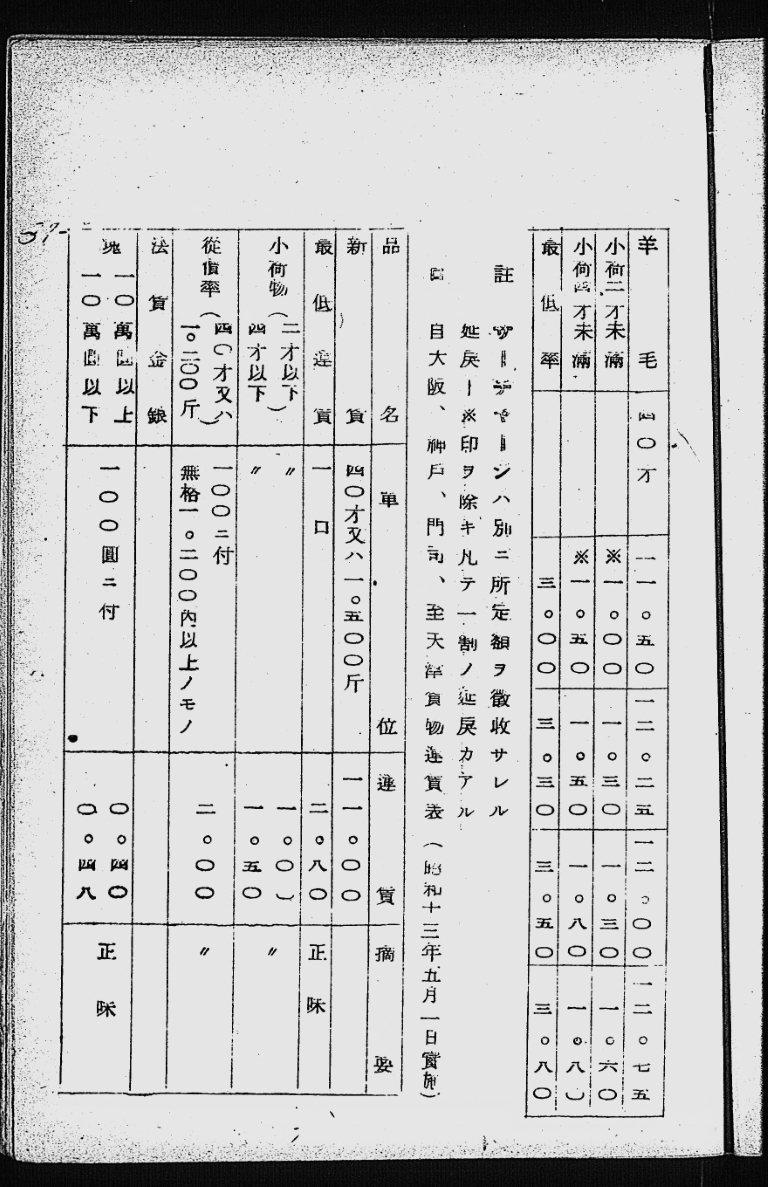 羊毛 四〇才 一一。五〇 一二。二五 一二。〇〇 一二。七五
小荷二才未滿 ※一。〇〇 一。三〇 一。三〇 一。六〇
小荷四才未滿 ※一。五〇 一。五〇 一。八〇 一。八〇
最低率 三。〇〇 三。三〇 三。五〇 三。八〇
註 サーチヤーヂハ別ニ所定額ヲ徵收サレル
延戾ー※印ヲ除キ凡テ一割ノ延戾カアル
自大阪、神戶、門司、至天津貨物運賃表(昭和十三年五月一日實施)
品名 單位 運賃 摘要
新貨 四〇才又ハ一。五〇〇斤 一一。〇〇
最低運賃 一口 二。八〇 正味
小荷物(二才以下) 〃 一。〇〇 〃
四才以下 〃 一。五〇
從價率(四〇才又ハ) 一〇〇ニ付 二。〇〇 〃
一。二〇〇斤 無格一。二〇〇內以上ノモノ
法貨金銀
塊 一〇萬圓以上 一〇〇圓ニ付 〇。四〇 正味
一〇萬圓以下 〇。四八